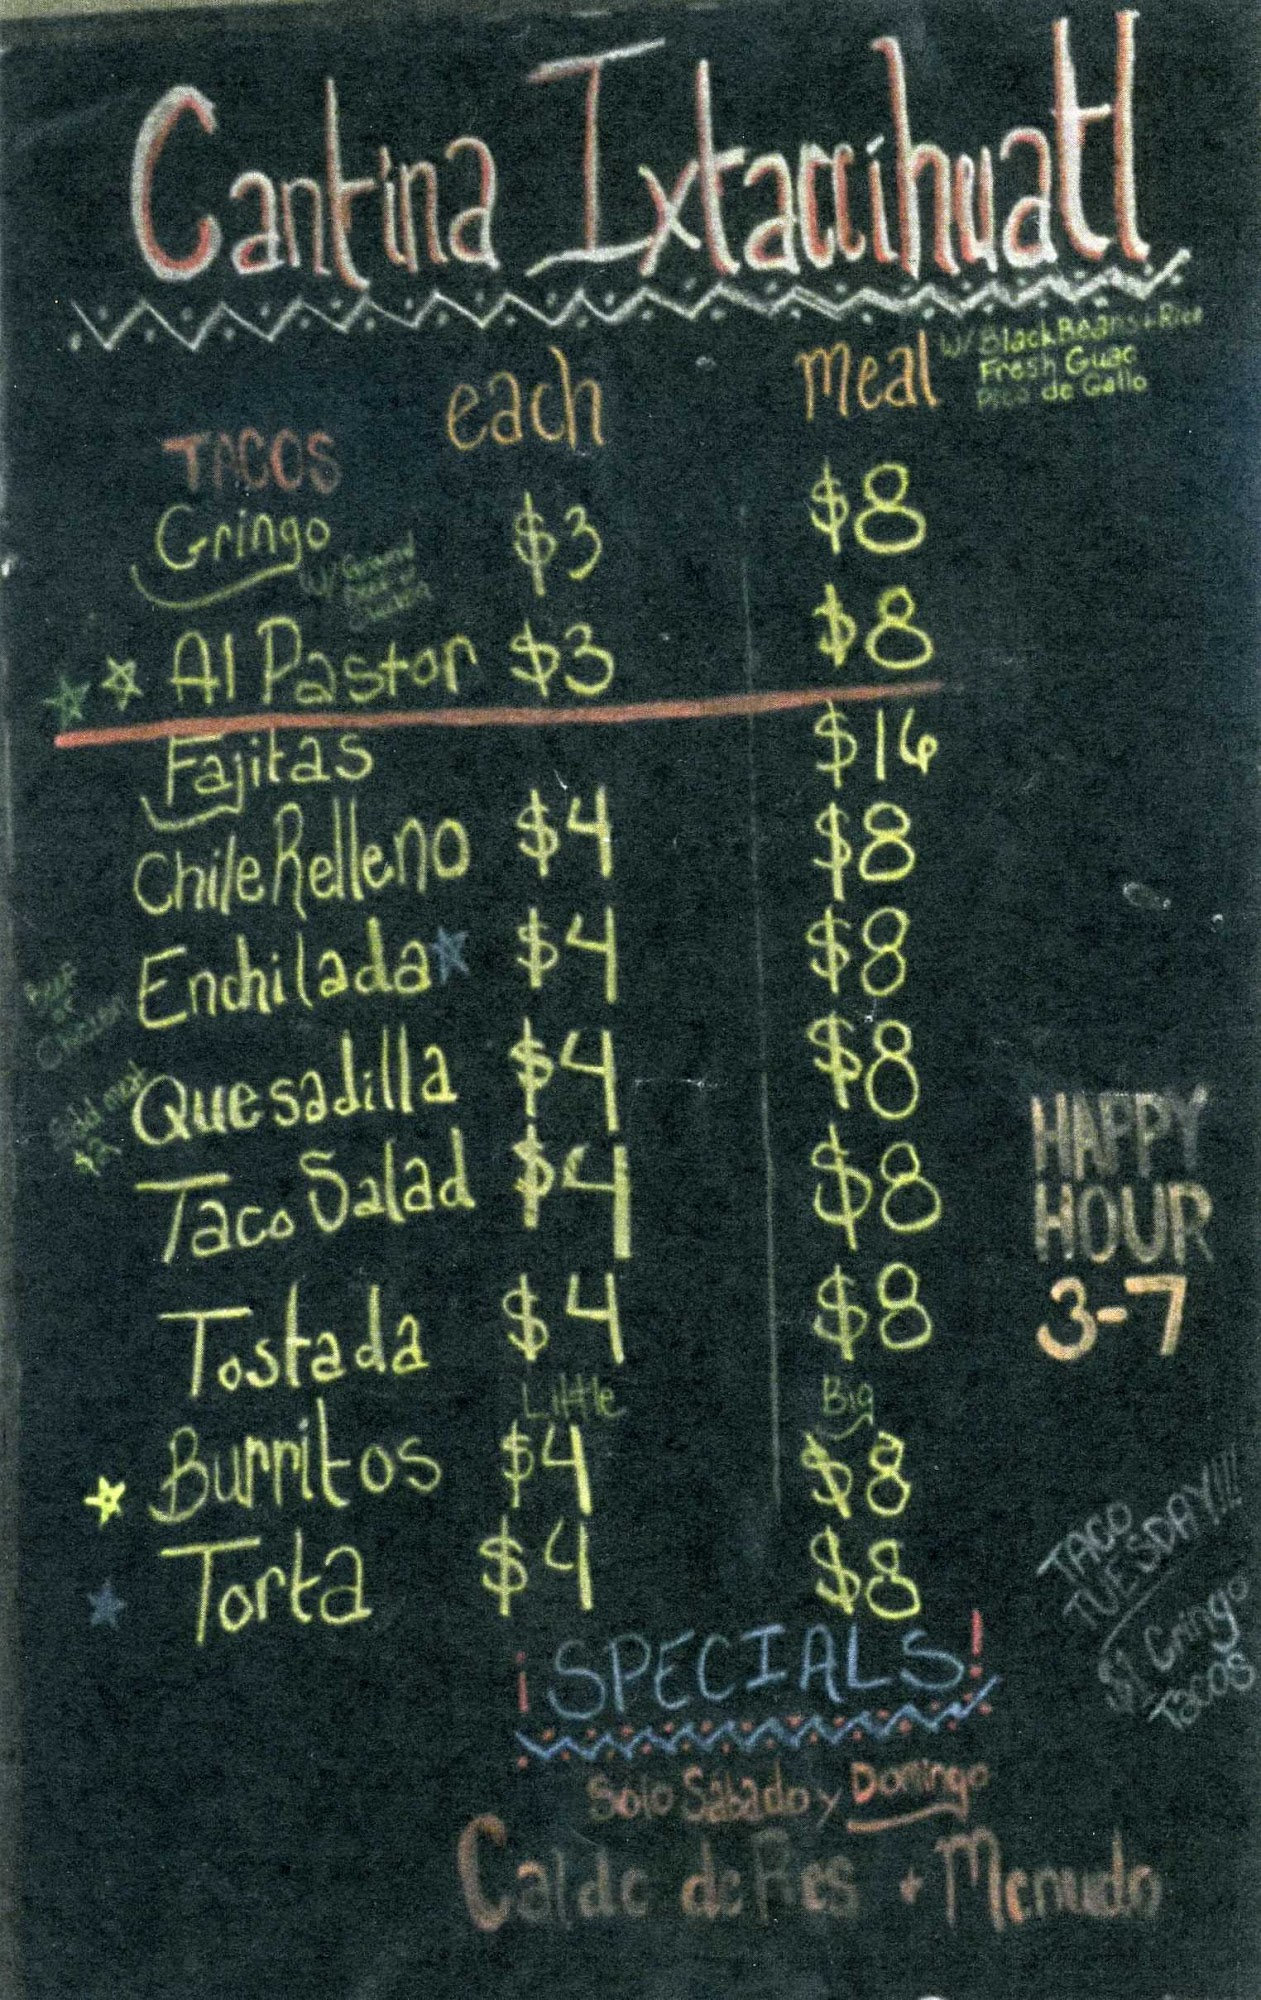 Cantina Ixtaccihuatl
each meal W/ Black Beans + Rice
Fresh Guac
Pico de Gallo
TACOS
Gringo $3 $8
W/ Ground
Beef or
Chicken
Al Pastor $3 $8
Fajitas $16
Chile Relleno $4 $8
Enchilada $4 $8
Beef
or
Chicken
Quesadilla $4 $8
Add meat
$2
Taco Salad $4 $8
HAPPY
HOUR
3-7
Tostada $4 $8
Little Big
Burritos $4 $8
Torta $4 $8
TACO
TUESDAY!!!!
$1 Gringo
Tacos
¡SPECIALS!
Solo Sábado y Domingo
Caldo de Res + Menudo